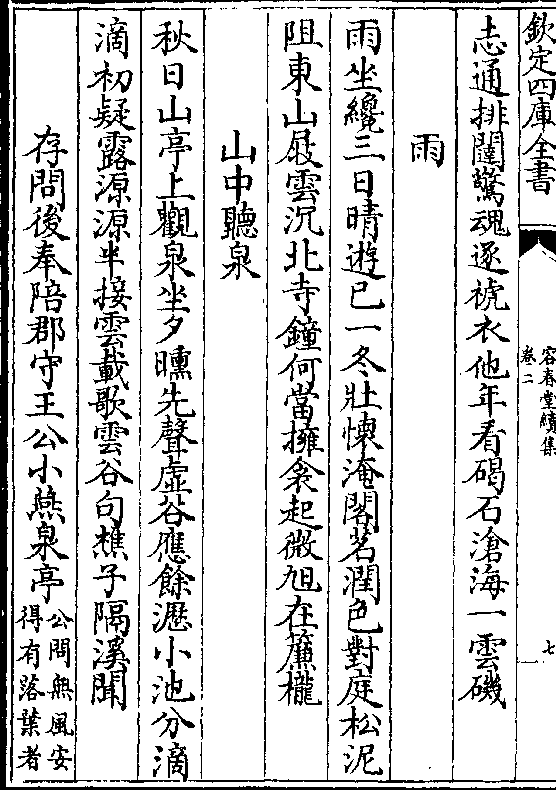 欽定四庫全書
容春堂續集
卷二
七
志通排闥驚魂逐褫衣他年看碣石滄海一雲磯
雨
雨坐纔三日晴遊已一冬壯懷淹閣茗潤色對庭松泥
阻東山屐雲沉北寺鐘何當擁衾起微旭在簾櫳
山中聽泉
秋日山亭上觀泉坐夕曛先聲虛谷應餘瀝小池分滴
滴初疑露源源半接雲載歌雲谷句樵子隔溪聞
存問後奉陪郡守王公小燕泉亭
公問無風安
得有落葉者